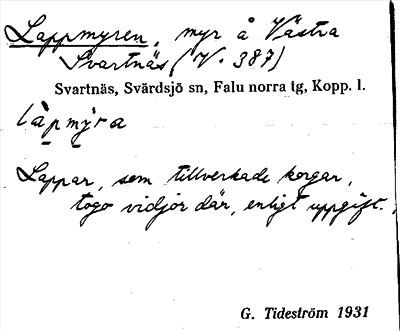 Lappmyren, myr å Västra
Svartnäs (V. 387)
Svartnäs, Svärdsjö sn, Falu norra tg, Kopp. l.
làpmỳra
Lappar, som tillverkade korgar,
togo vidjor där, enligt uppgift.
G. Tideström 1931